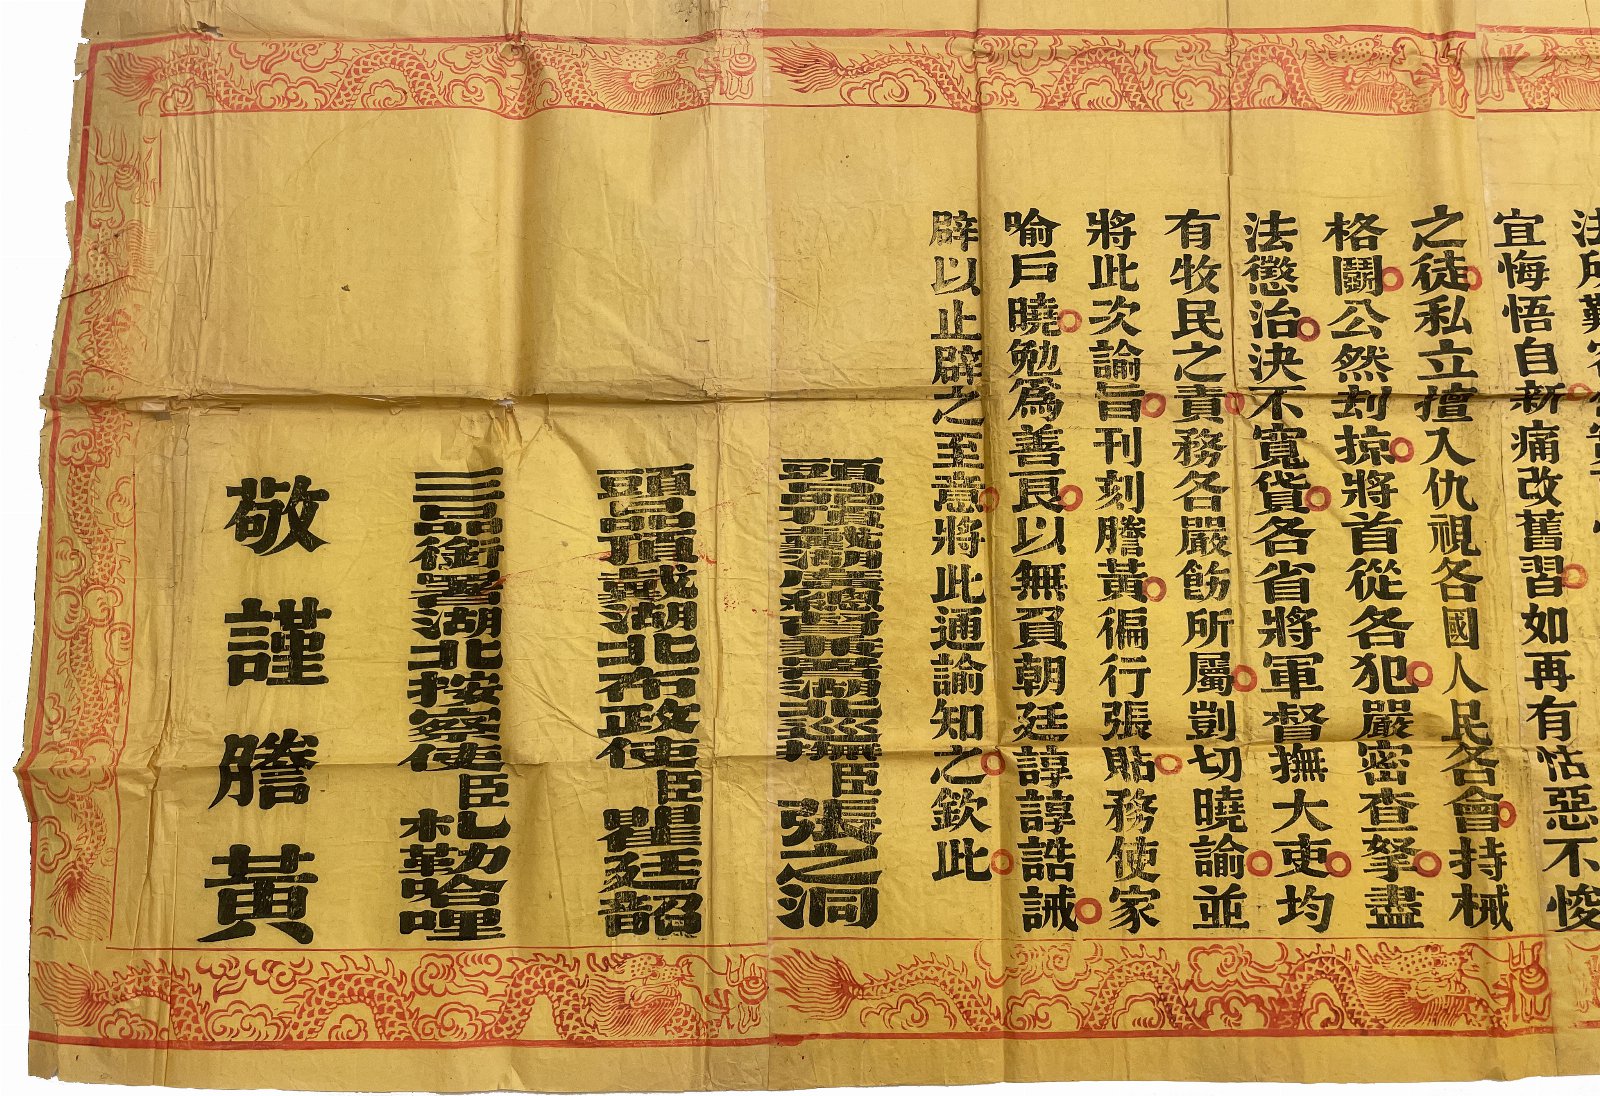 法所難
宜悔悟自新痛改舊習如再有怙惡不悛
之徒私立擅入仇視各國人民各會持械
格鬭公然刦掠將首從各犯嚴密查拏盡
法懲治決不寬貸各省將軍督撫大吏均
有牧民之責務各嚴飭所屬剴切曉諭並
將此次諭旨刊刻謄黃徧行張貼務使家
喻戶曉勉爲善良以無負朝廷諄諄誥誡
辟以止辟之至意將此通諭知之欽此
頭品頂戴湖廣總督兼署湖北巡撫臣張之洞
頭品頂戴湖北布政使臣瞿廷韶
三品銜署湖北按察使臣札勒哈哩
敬謹謄黃